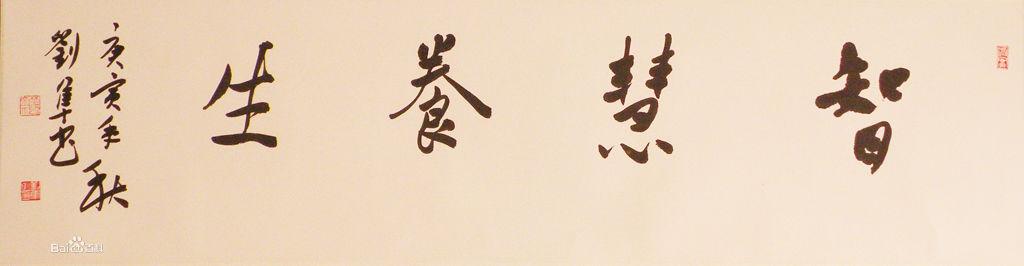 智慧養生
庚寅年秋
劉隼书
Bai百科